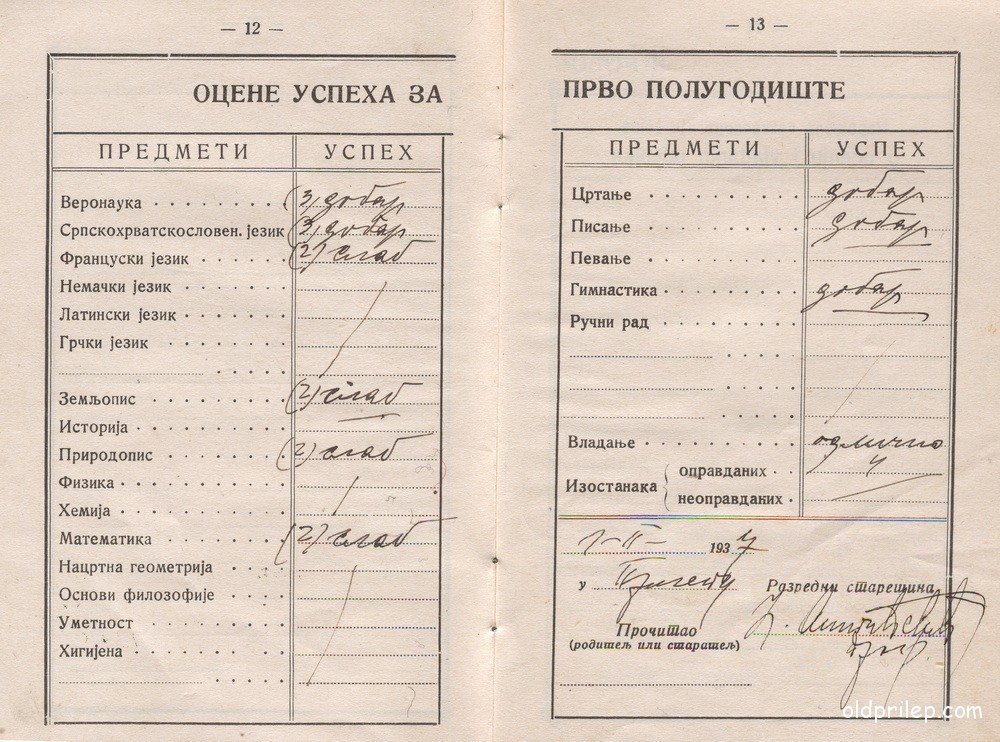 — 12 —
ОЦЕНЕ УСПЕХА ЗА
ПРЕДМЕТИ УСПЕХ
Веронаука (3) добар
Српскохрватскословен. језик (3) добар
Француски језик (2) слаб
Немачки језик
Латински језик
Грчки језик
Земљопис (2) слаб
Историја
Природопис (2) слаб
Физика
Хемија
Математика (2) слаб
Нацртна геометрија
Основи филозофије
Уметност
Хигијена
— 13 —
ПРВО ПОЛУГОДИШТЕ
ПРЕДМЕТИ УСПЕХ
Цртање добар
Писање добар
Певање
Гимнастика добар
Ручни рад
Владање одлично
Изостанака оправданих 4
неоправданих
1-II- 1937
у Прилепу Разредни старешина
Прочитао
(родитељ или старатељ)
oldprilep.com